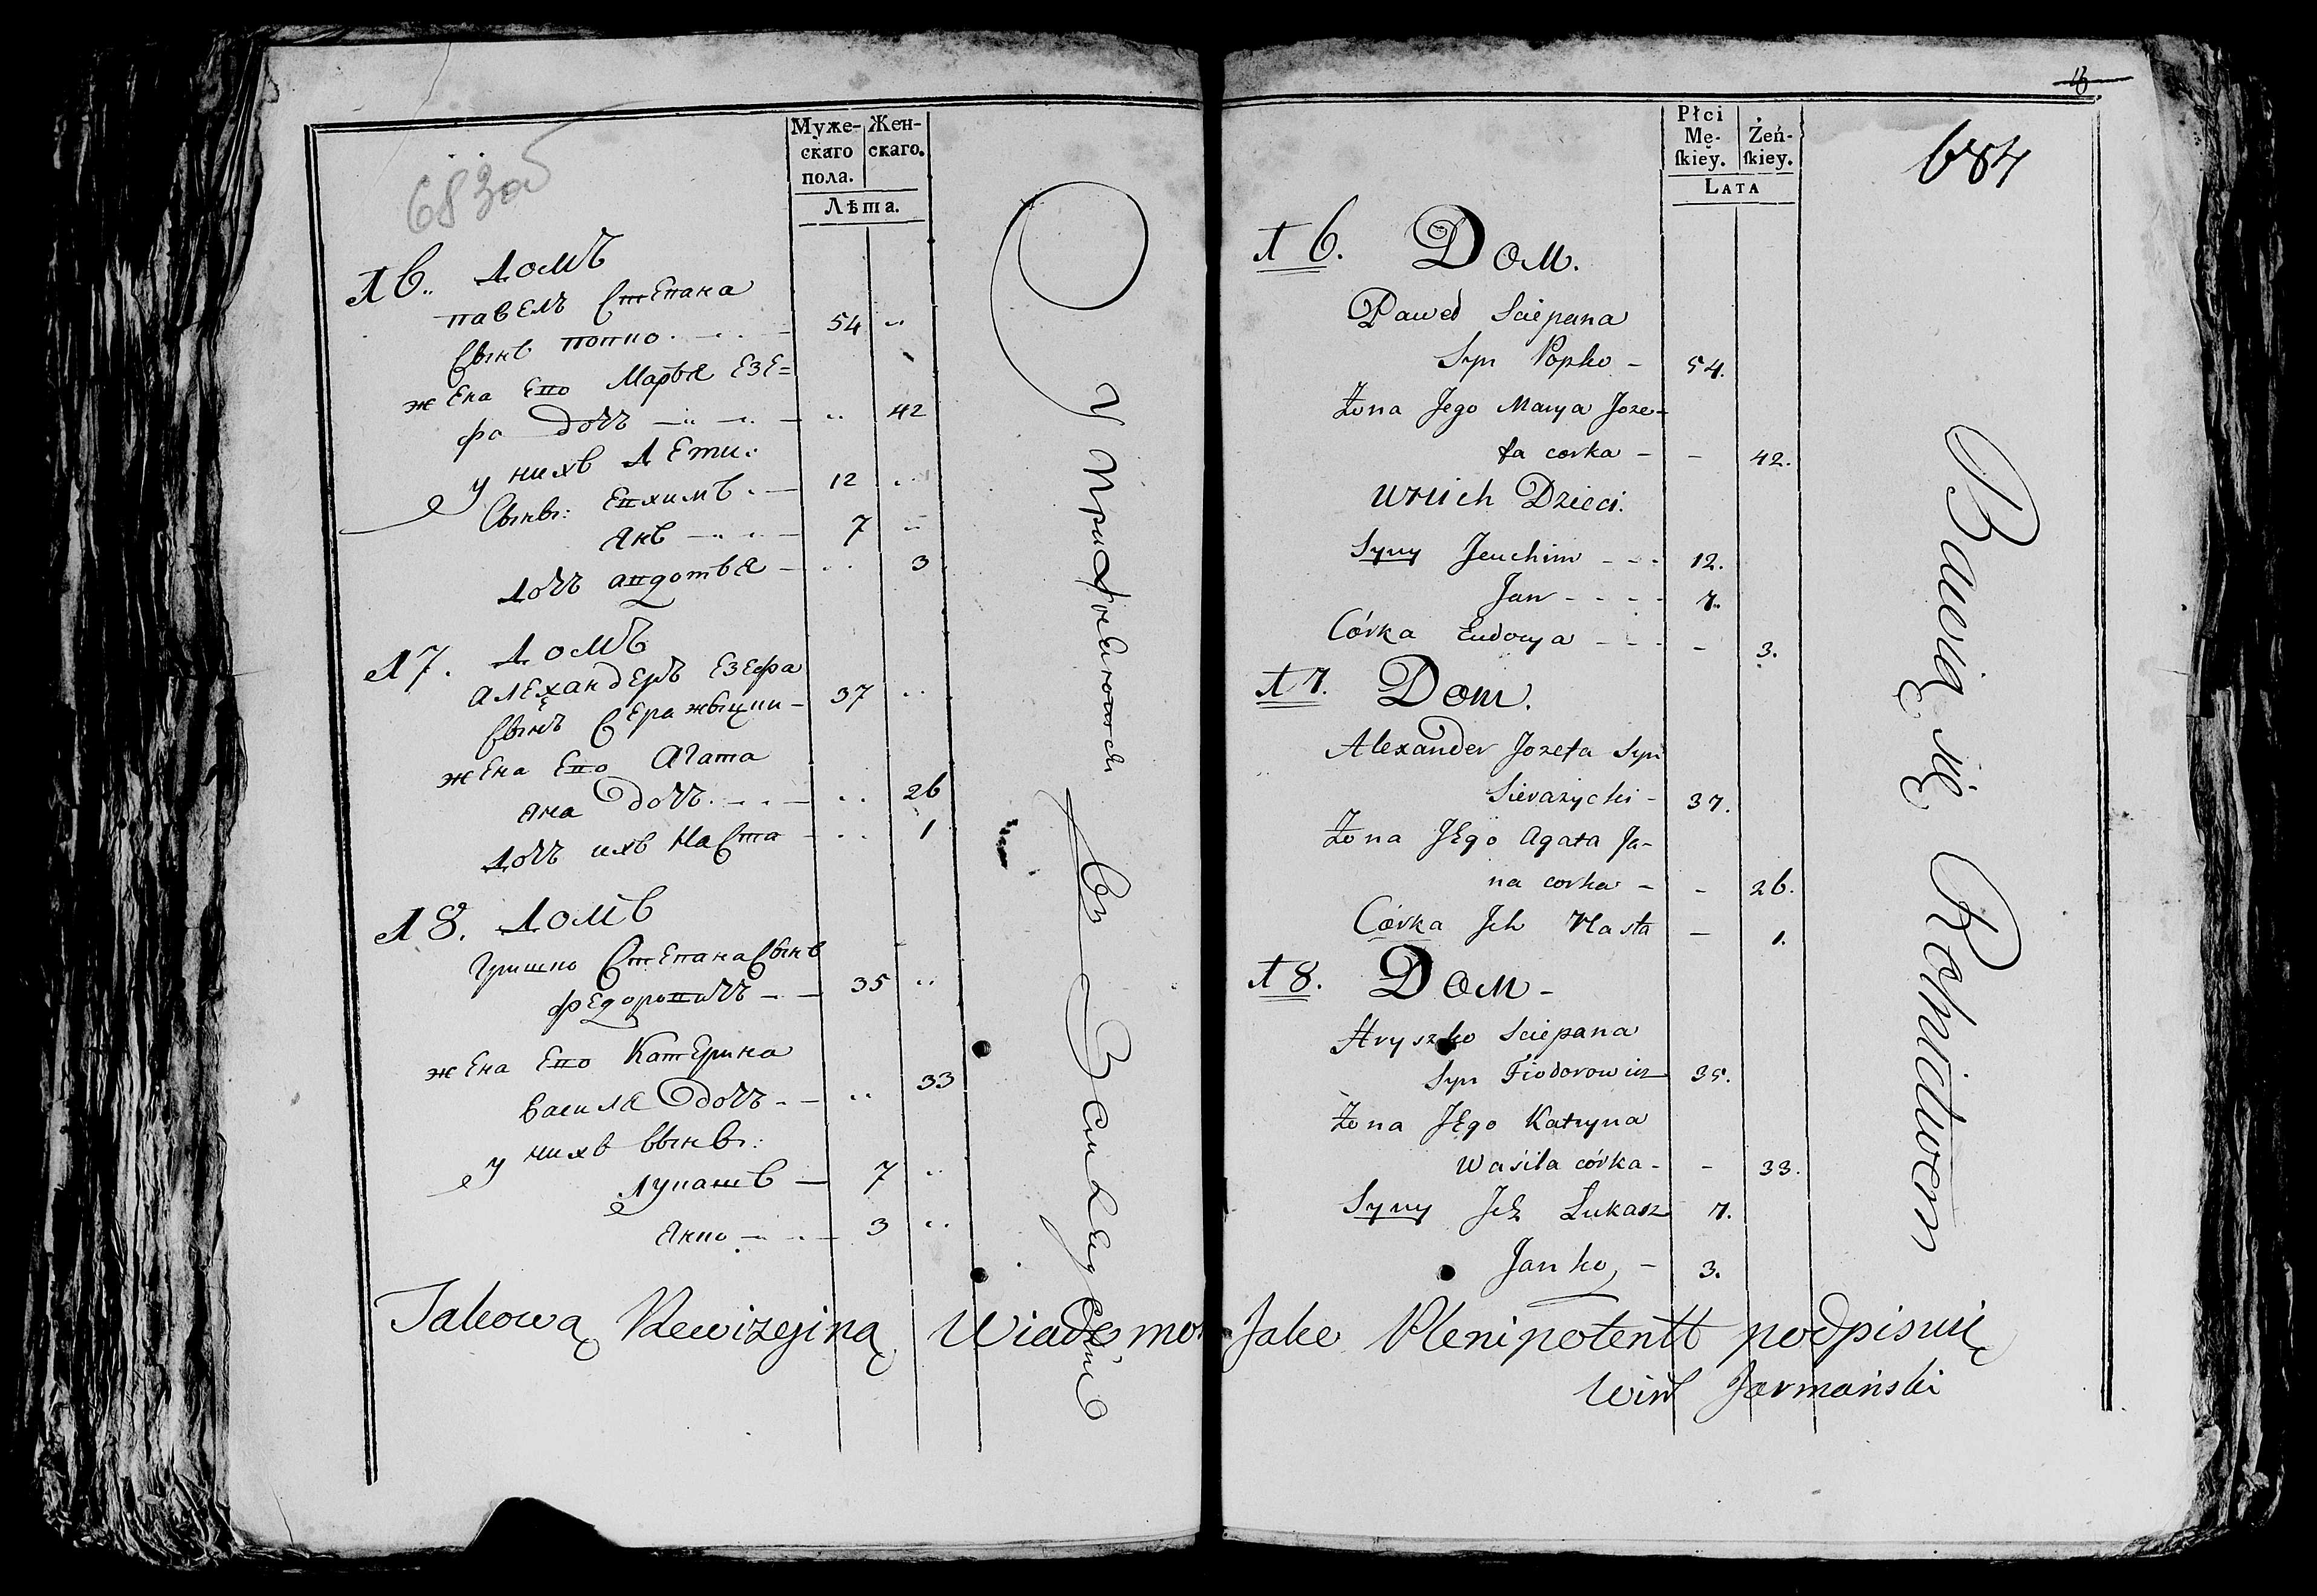 683об
Муже-
скаго
пола.
Жен-
скаго.
Лѣта.
№ 6. Домъ
павелъ Степана
Сынъ попко
54
жена Ево Марья Езе=
фа дочъ
42
у нихъ Дети:
Сыны: Евхимъ
12
Янъ
7
Дочъ авдотья
3
№ 7. Домъ
александеръ Езефа
Сынъ Серажыцки
37
жена Ево Агата
яна дочъ
26
Дочъ ихъ Наста
1
№ 8. Домъ
Гришко Степана Сынъ
федоровичъ
35
жена Ево Катерина
Василя дочъ
33
у нихъ Сыны:
лукашъ
7
Янко
3
Упражняются въ
Takową Rewizyiną Wiadomo
684
Płci
Mę-
ſkiey.
Żeń-
ſkiey.
LATA
№ 6. Dom.
Paweł Sciepana
Syn Popko - 54.
Żona Jego Marya Joze-
fa corka - - 42.
U Nich Dzieci.
Syny Jeuchim - - - 12.
Jan - - - - 7.
Córka Eudocya - - - - 3.
№ 7. Dom.
Alexander Jozefa Syn
Sierażycki - 37.
Żona JEgo Agata Ja-
na corka - - 26.
Córka Jch Nasta - 1.
№ 8. Dom -
Hryszko Sciepana
Syn Fiodorowicz 35.
Żona JEgo Katryna
Waśila córka - - 33.
Syny Jch Łukasz 7.
Janko, - 3.
Bawią się Rolnictwem
Jako Plenipotentt podpisuię
Win̄ Jarmański